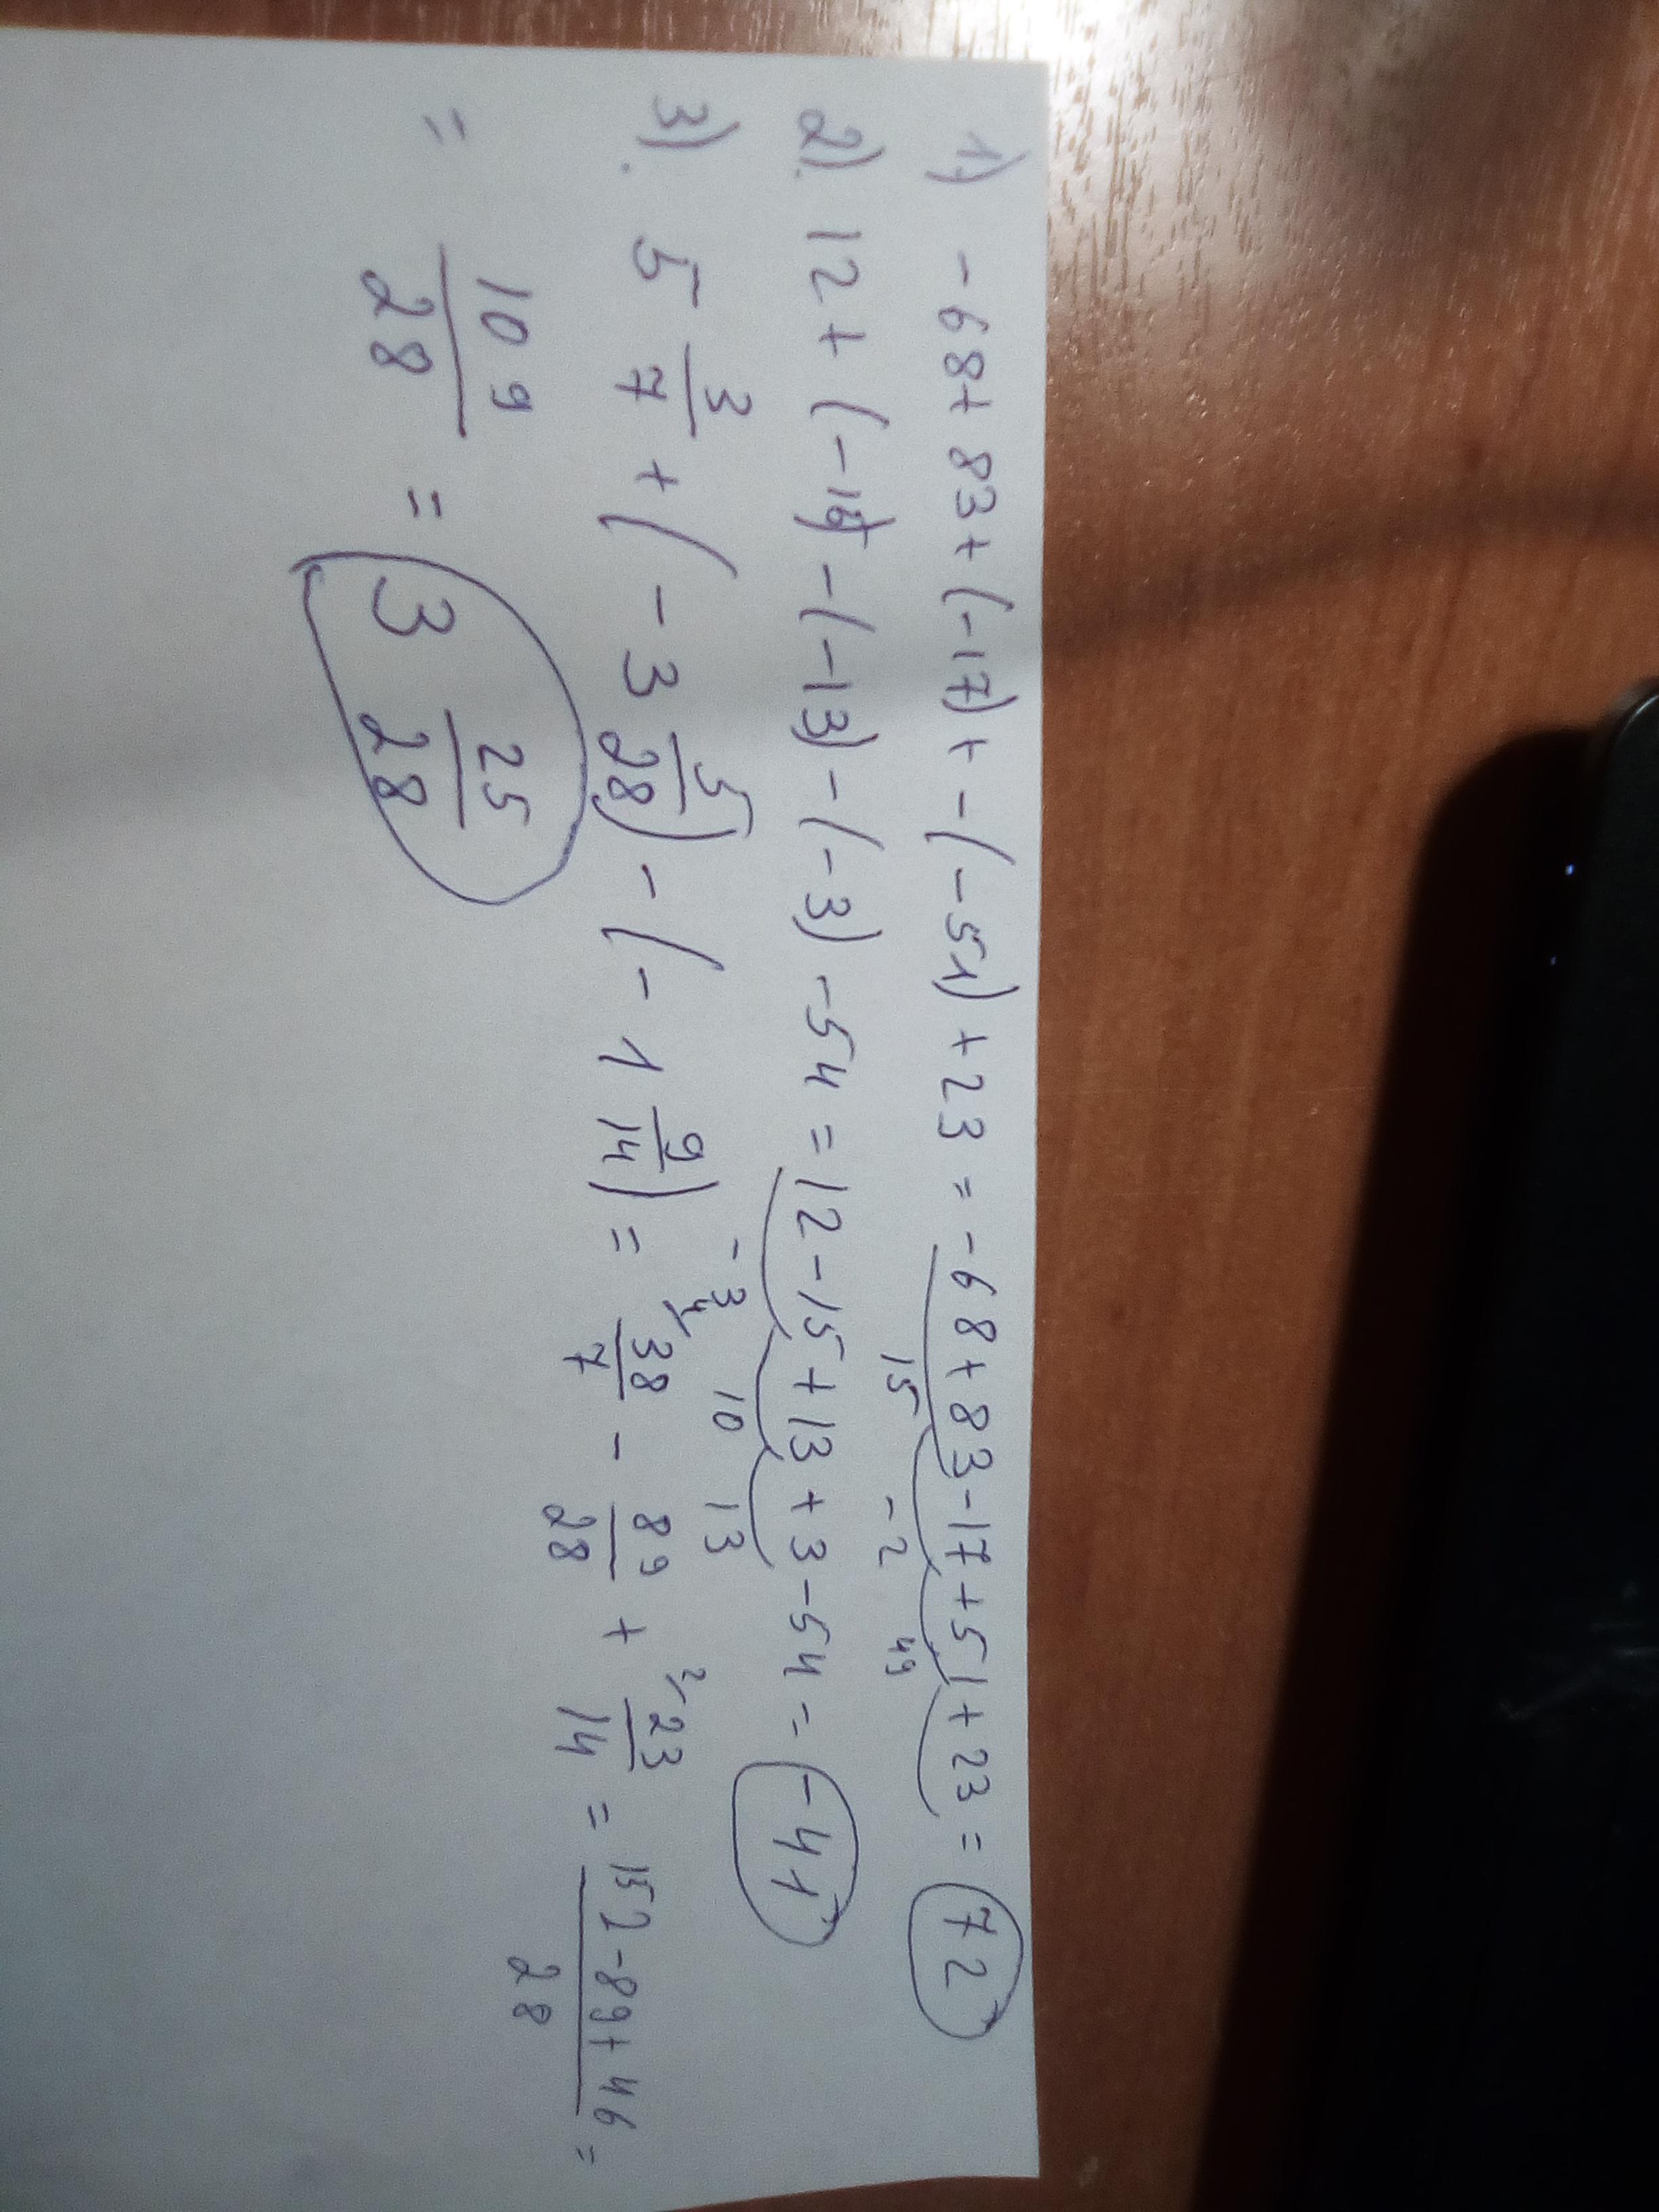 1) -68+83+(-17)+-(-51)+23=-68+83-17+51+23=72
15 -2 49
2). 12+(-15)-(-13)-(-3)-54=12-15+13+3-54=-41
-3 10 13
3). 5 3/7+(-3 5/28)-(-1 9/14)= 4/ 38/7 - 89/28 + 2/ 23/14 = 152-89+46/28 =
= 109/28 = 3 25/28